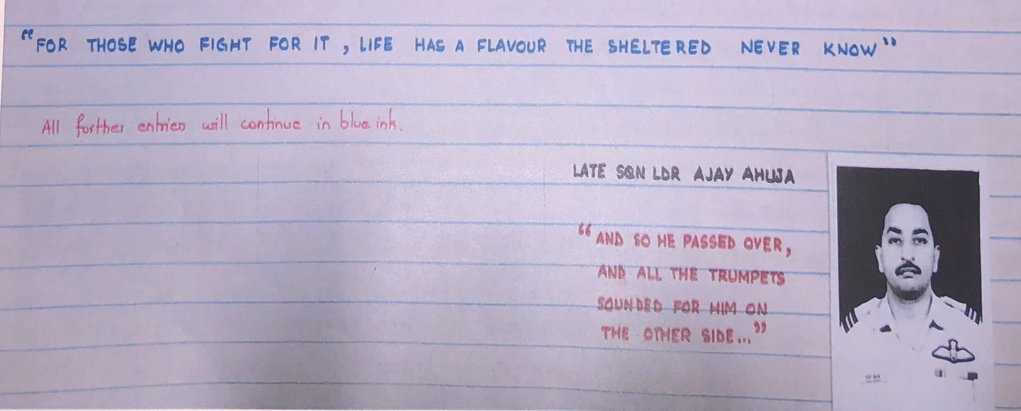 "FOR THOSE WHO FIGHT FOR IT, LIFE HAS A FLAVOUR THE SHELTERED NEVER KNOW"
All forther entries will continue in blue ink.
LATE SQN LDR AJAY AHUJA
"AND SO HE PASSED OVER,
AND ALL THE TRUMPETS
SOUNDED FOR HIM ON
THE OTHER SIDE..."